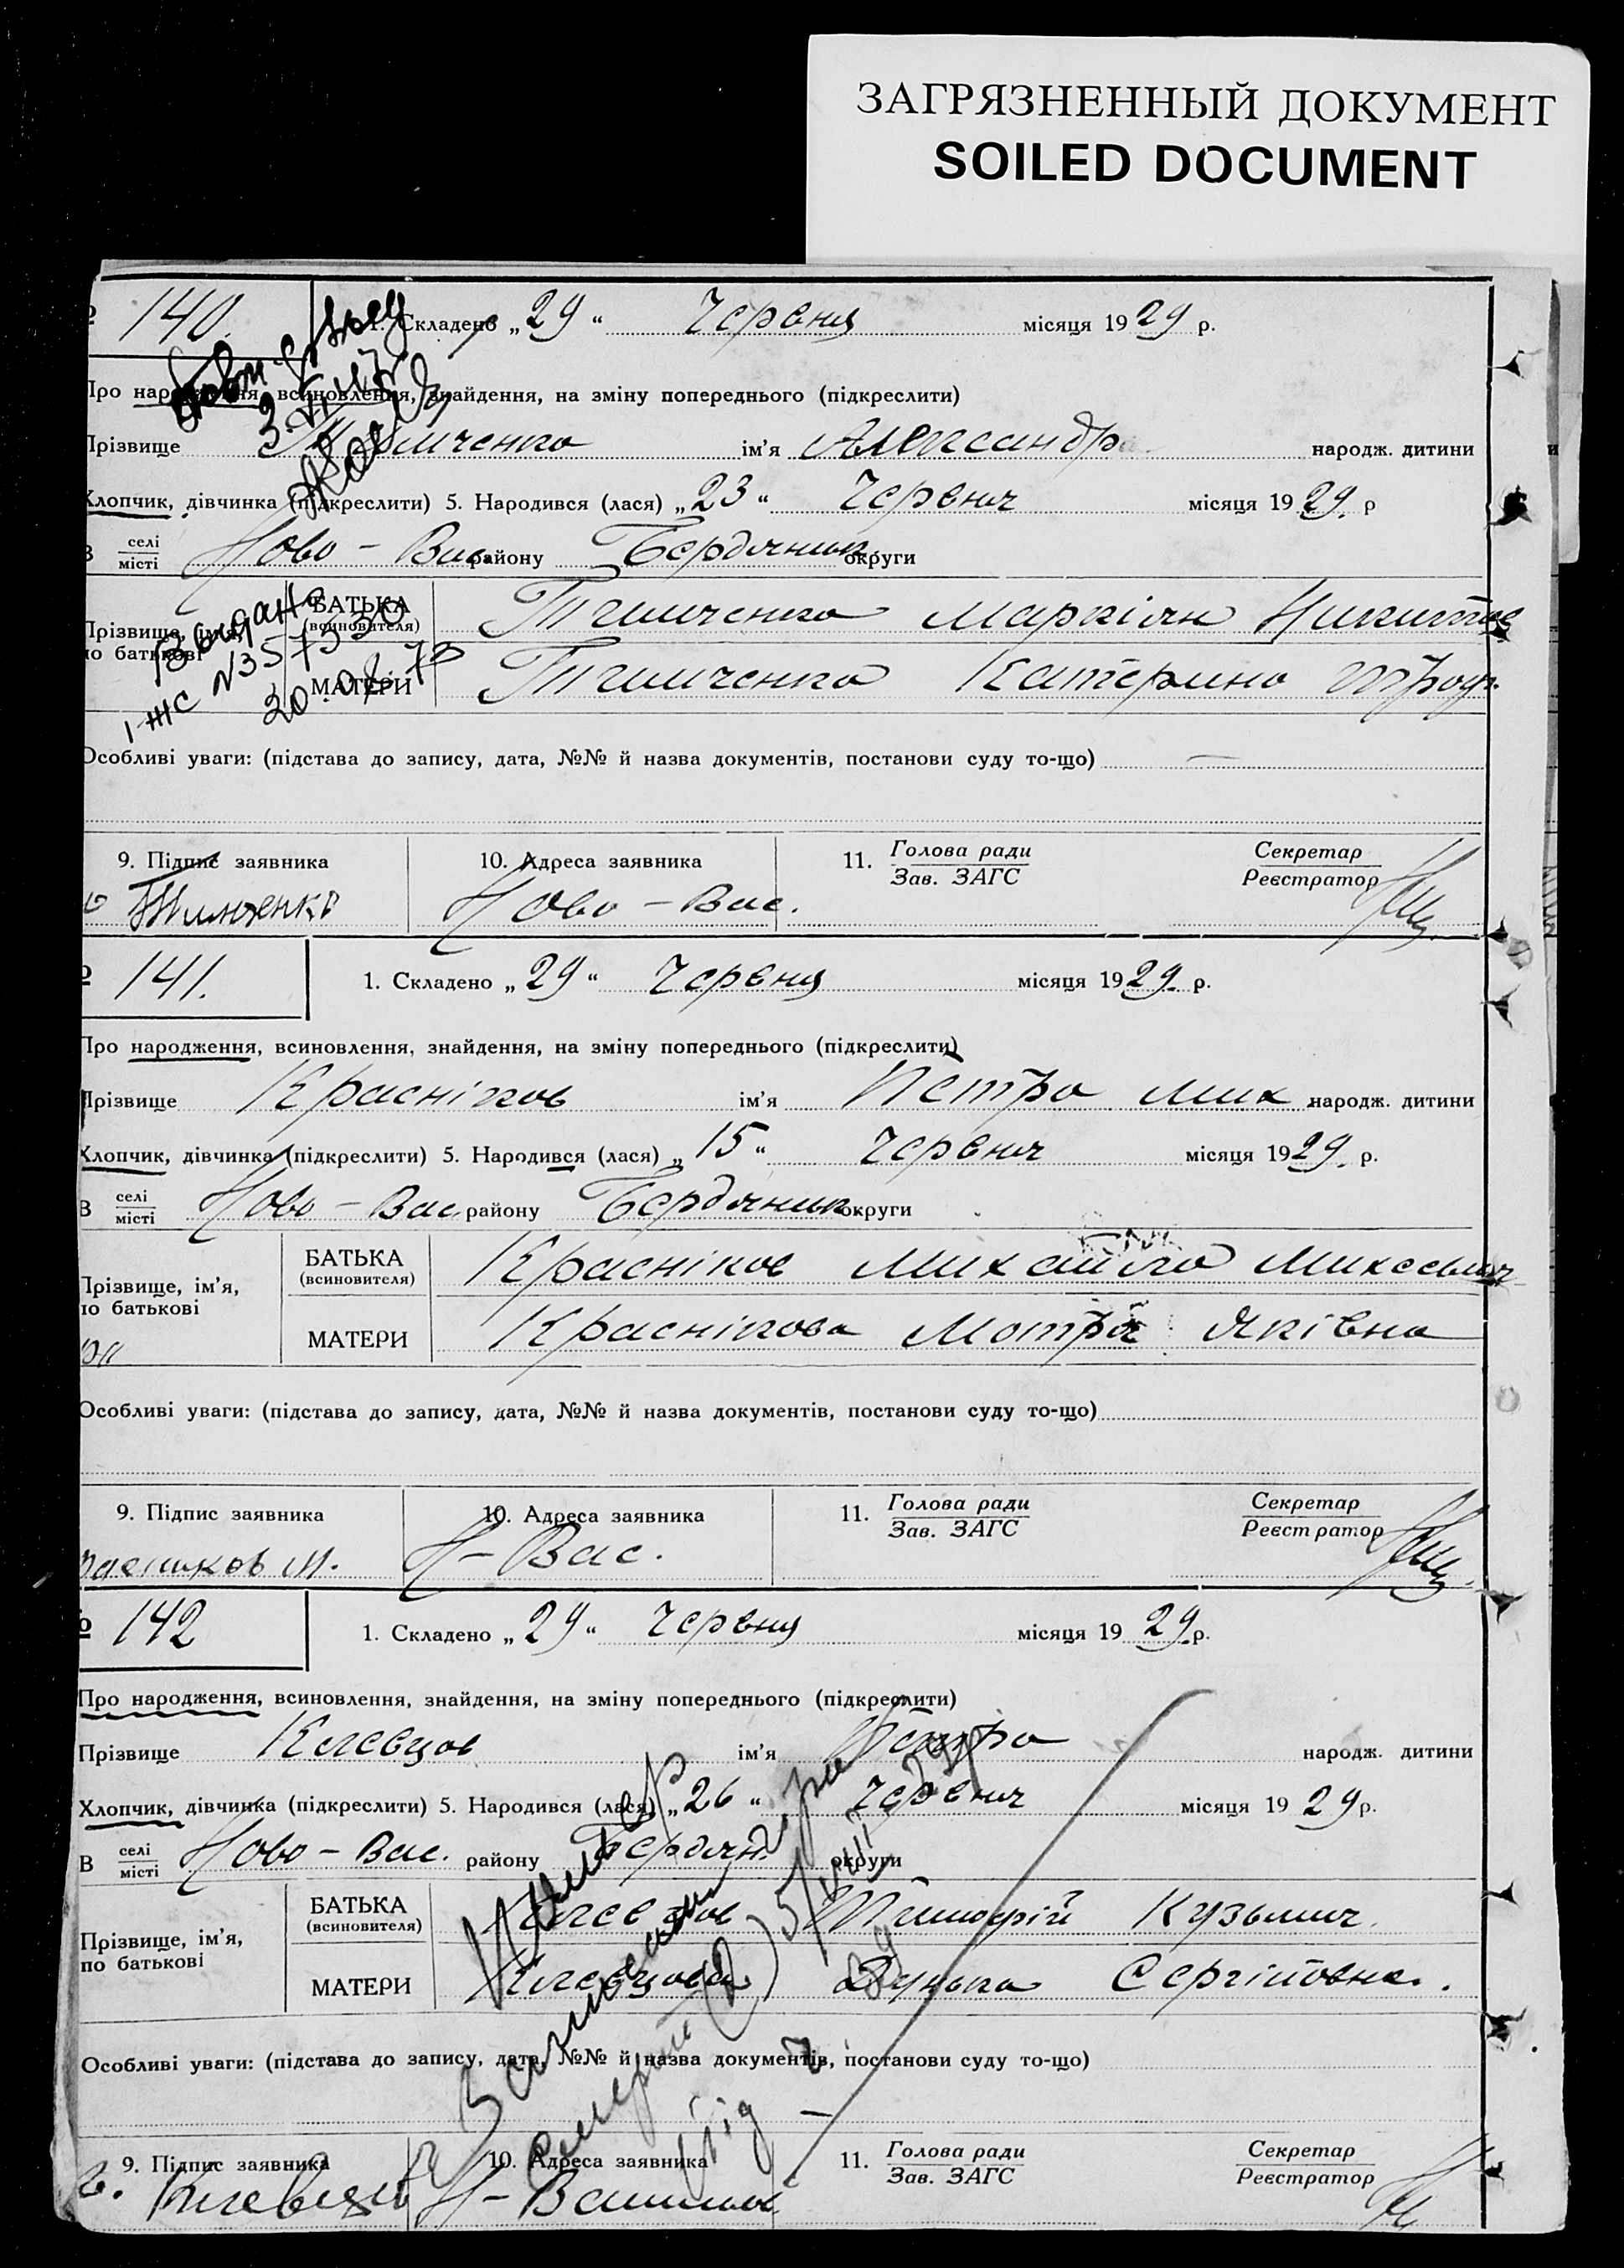 ЗАГРЯЗНЕННЫЙ ДОКУМЕНТ
SOILED DOCUMENT
140. 1. Складено „29“ Червня місяця 1929 р.
Про народження, всиновлення, знайдення, на зміну попереднього (підкреслити)
Прізвище Тимченко ім’я Александр народж. дитини
Хлопчик, дівчинка (підкреслити) 5. Народився (лася) „23“ Червня місяця 1929. р
В селі
місті Ново-Вас. району Бердянськ. округи
Прізвище, ім’я,
по батькові
БАТЬКА
(всиновителя) Тимченко Маркіян
МАТЕРИ Тимченко Катерина
Видано
І-ЖС №
20.
Особливі уваги: (підстава до запису, дата, №№ й назва документів, постанови суду то-що) —
9. Підпис заявника 10. Адреса заявника 11. Голова ради
Зав. ЗАГС Секретар
Реєстратор
Ново-Вас.
141. 1. Складено „29“ Червня місяця 1929. р.
Про народження, всиновлення, знайдення, на зміну попереднього (підкреслити)
Прізвище Красніков ім’я Петро Мих народж. дитини
Хлопчик, дівчинка (підкреслити) 5. Народився (лася) „15“ Червня місяця 1929. р.
В селі
місті Ново-Вас. району Бердянськ. округи
Прізвище, ім’я,
по батькові
БАТЬКА
(всиновителя) Красніков Михайло
МАТЕРИ Краснікова Мотря Яківна
Особливі уваги: (підстава до запису, дата, №№ й назва документів, постанови суду то-що)
9. Підпис заявника 10. Адреса заявника 11. Голова ради
Зав. ЗАГС Секретар
Реєстратор
Н-Вас.
142 1. Складено „29“ Червня місяця 1929 р.
Про народження, всиновлення, знайдення, на зміну попереднього (підкреслити)
Прізвище Клевцов ім’я Петро народж. дитини
Хлопчик, дівчинка (підкреслити) 5. Народився (лася) „26“ Червня місяця 1929 р.
В селі
місті Ново-Вас. району Бердян. округи
Прізвище, ім’я,
по батькові
БАТЬКА
(всиновителя) Клевцов Тимофій Кузьмич
МАТЕРИ Клевцова Дунька
Особливі уваги: (підстава до запису, дата, №№ й назва документів, постанови суду то-що)
9. Підпис заявника 10. Адреса заявника 11. Голова ради
Зав. ЗАГС Секретар
Реєстратор